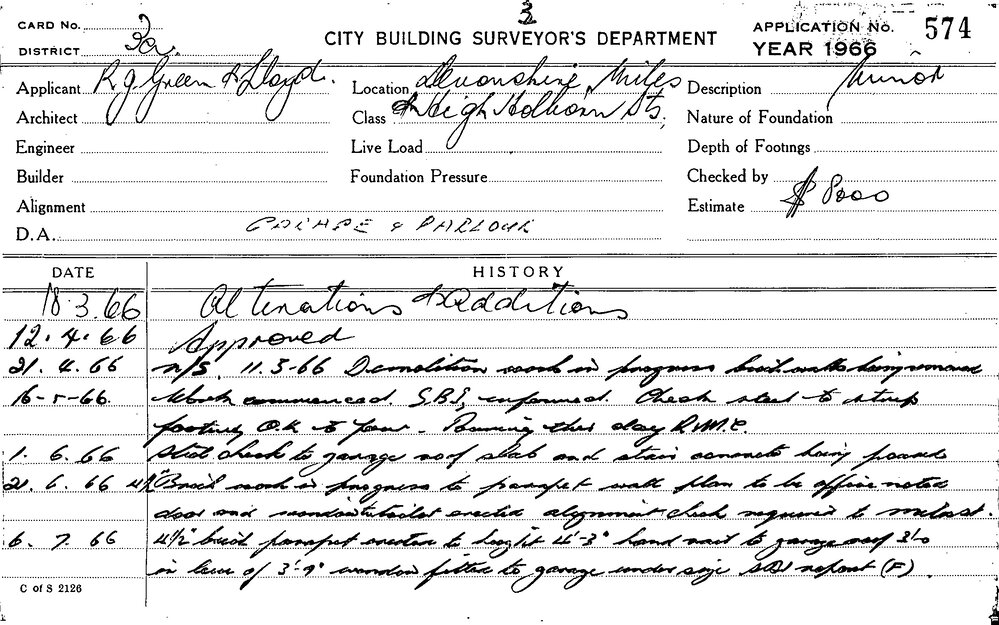 3
CARD No.
DISTRICT 3a.
CITY BUILDING SURVEYOR'S DEPARTMENT
APPLICATION No. 574
YEAR 1966
Applicant R.G. Green & Lloyd.
Location Devonshire, Miles
Description Minor
Architect
Class & High Holborn Sts,
Nature of Foundation
Engineer
Live Load
Depth of Footings
Builder
Foundation Pressure
Checked by
Alignment
Estimate $ 8000
D.A.
& PARLOUR
DATE
HISTORY
18.3.66 Alterations & Additions
12.4.66 Approved
21.4.66 n/s. 11.3-66 Demolition work in progress brick walls being removed
16-5-66. Work commenced. S.B.S, informed. Check steel to strip
footing O.K to pour. Pouring this day R.M.C.
1.6.66 Steel check to garage roof slab and stairs concrete being poured
21.6.66 4½" Brick work in progress to parapet wall plan to be office noted
door and erected alignment check required to
6.7.66 4½" brick parapet erected to height 4'-3" hand rail to garage roof 3'-0
in lieu of 3'-9" window fitted to garage under size report (F).
C of S 2126